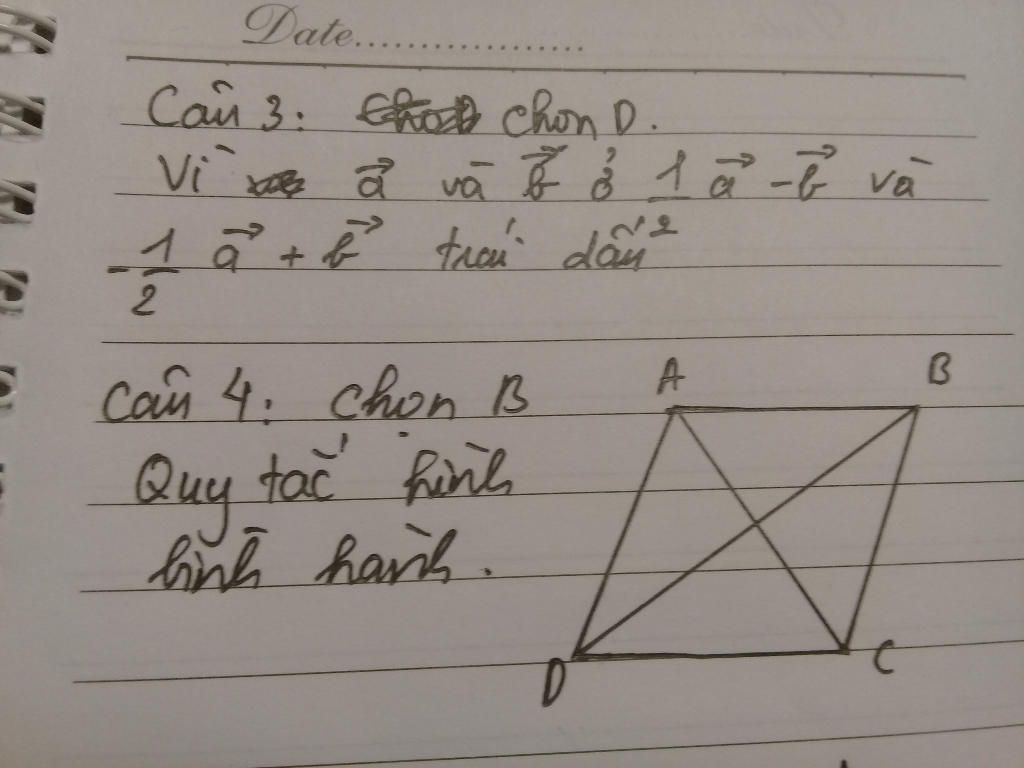 Date..................
Câu 3: chọn D.
Vì a⃗ và b⃗ ở 1/2 a⃗ - b⃗ và
-1/2 a⃗ + b⃗ trái dấu
Câu 4: chọn B
Quy tắc hình
bình hành.
A B
D C